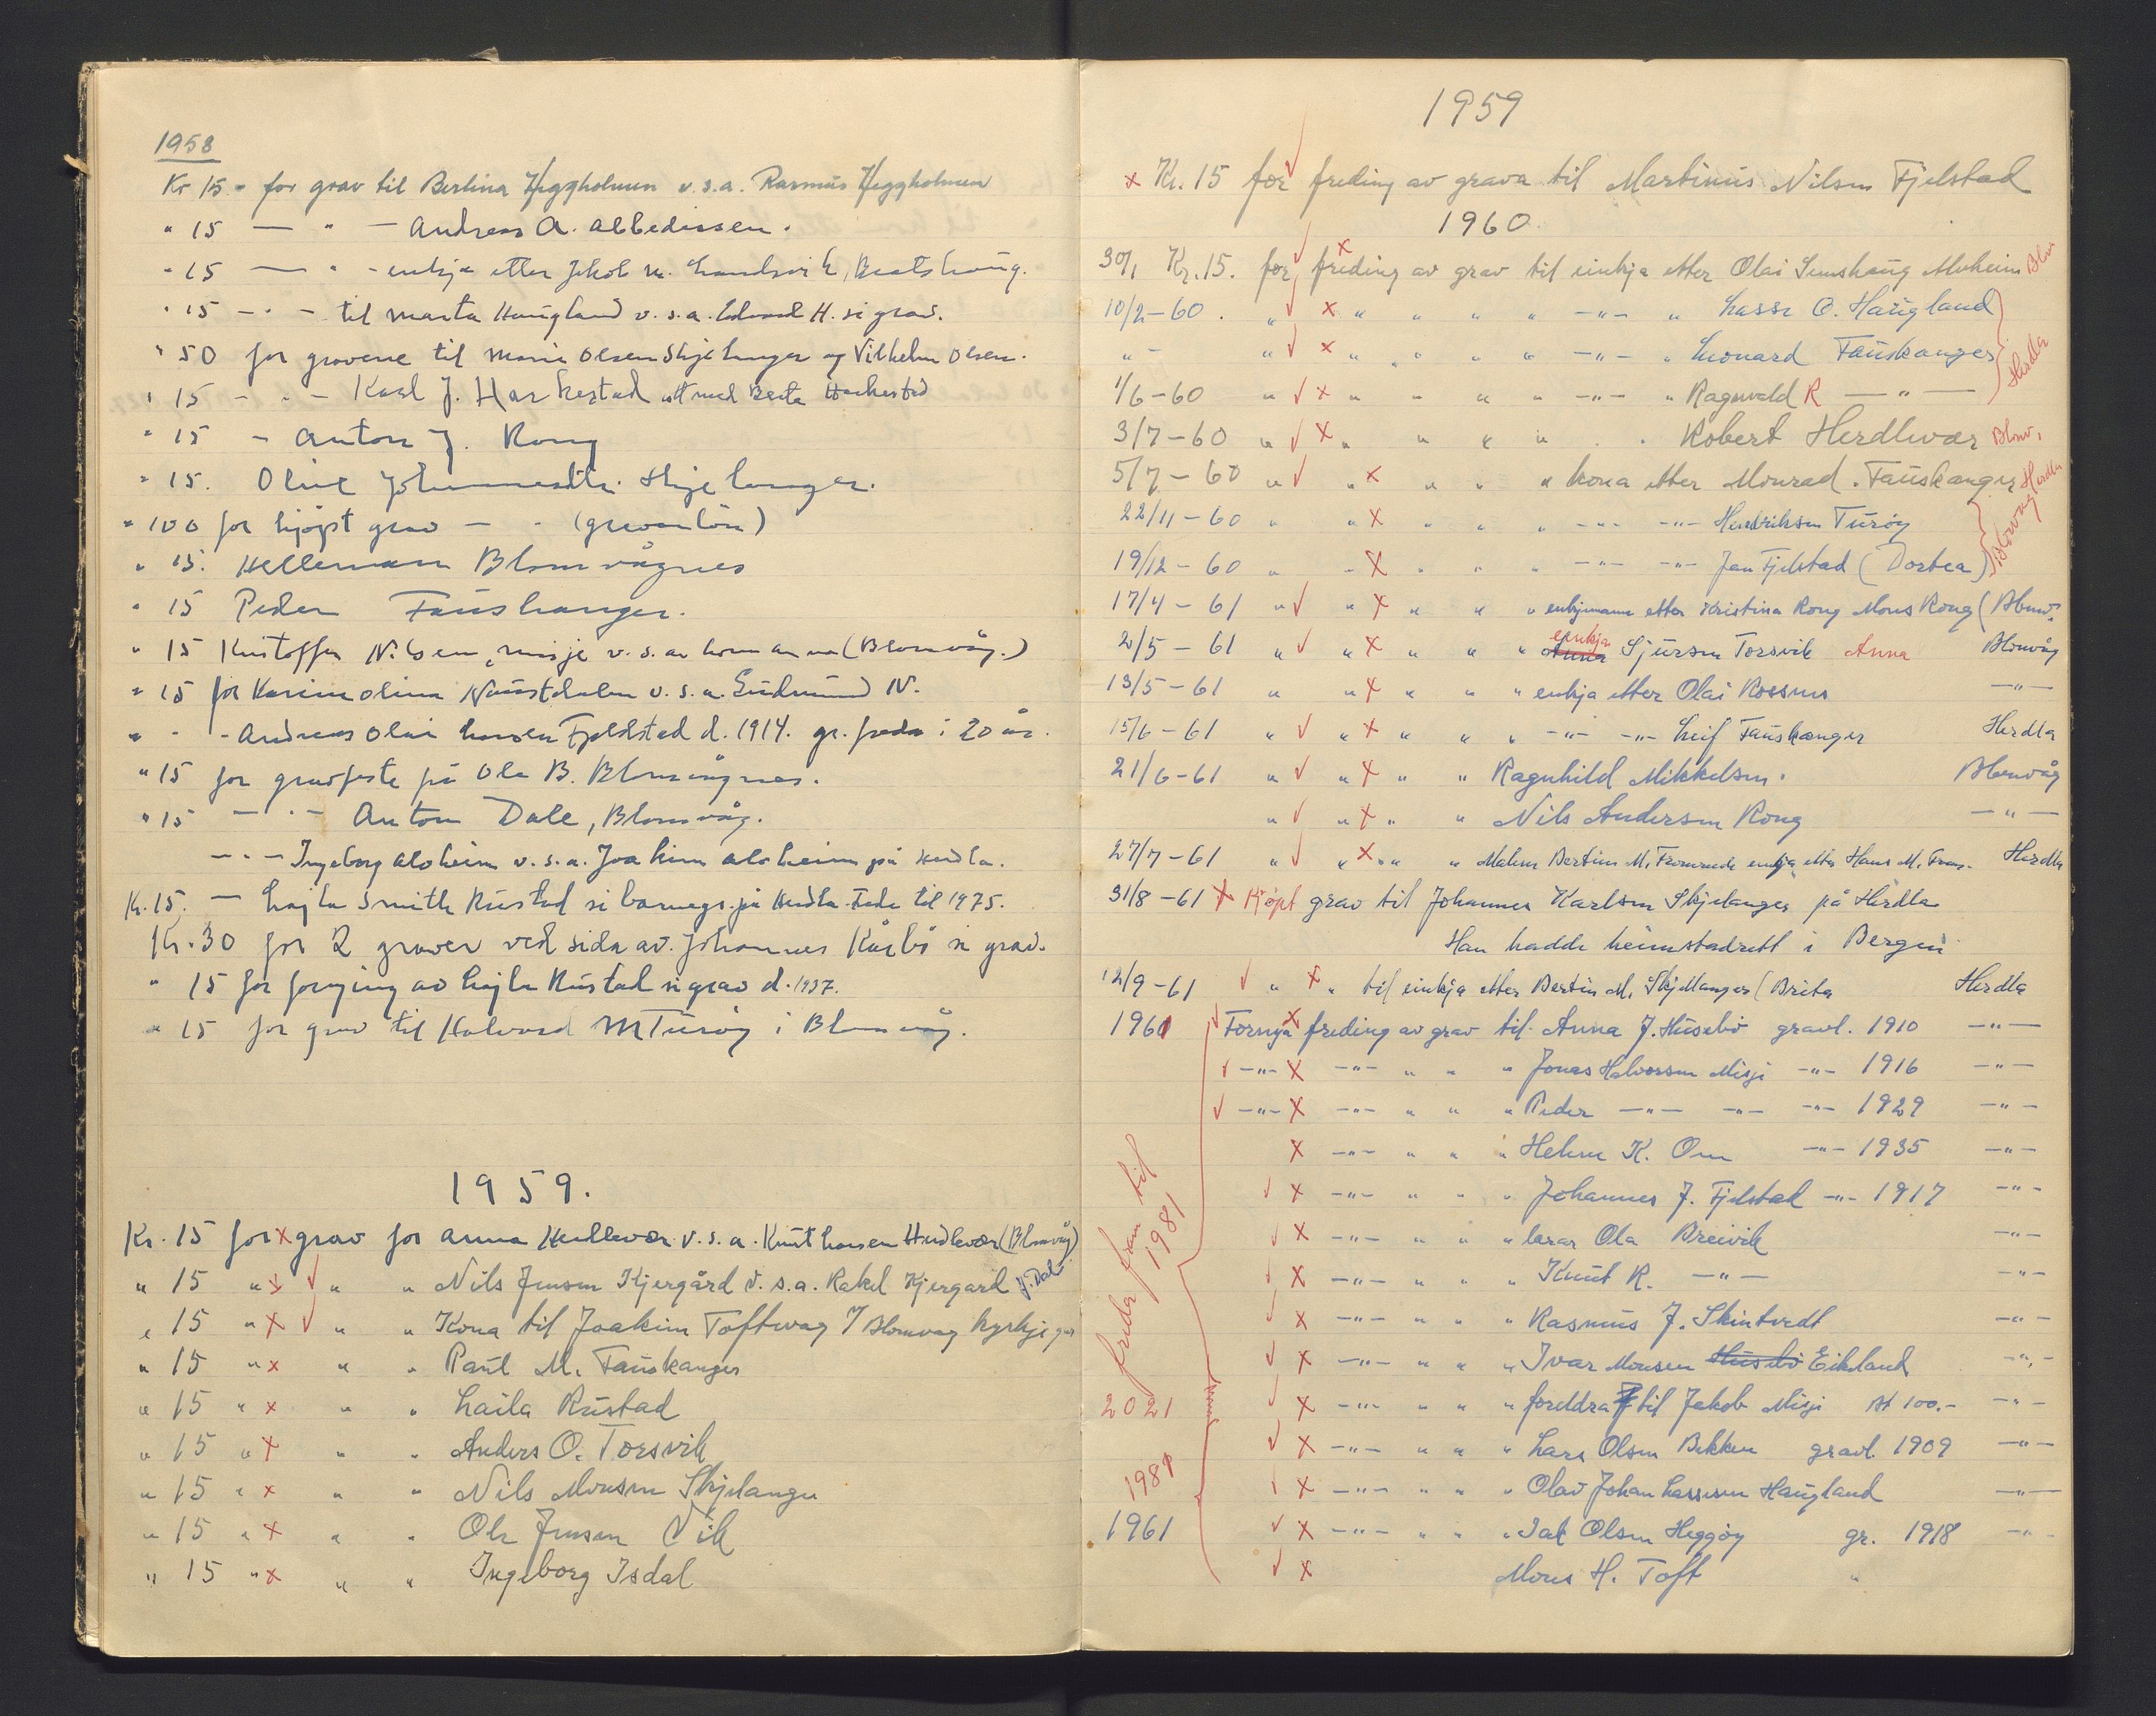 1958
Kr 15 - for grav til Berlina Heggholmen v.s.a. Rasmus Heggholmen
" 15 — " — Andreas A. Albedissen.
" 15 — " - enkje etter Jakob M. Landsvik,
" 15 - " - til Marta Haugland v.s.a. Edvard H. si grav.
" 50 for gravene til Marie Olsen Skjelanger og Vilhelm Olsen.
" 15 - " - Karl J. Harkestad
" 15 - Anton J. Rong
" 15. Oline Johannesdtr. Skjelanger.
" 100 for kjøpt grav — "
" 15. Hellemann Blomvågnes
" 15 Peder Fauskanger.
" 15 Kristoffer Nilsen, Misje v.s.a. kona Anna (Blomvåg.)
" 15 for Karin Olina Naustdalen v.s.a. Gudmund N.
" - " - Andreas Olai Hansen Fjeldstad d. 1914. gr. freda i 20 år.
" 15 for gravfeste på Ole B. Blomvågnes.
" 15 — " — Anton Dale, Blomvåg.
— " — Ingeborg Aloheim v.s.a. Joakim Aloheim på Herdla.
Kr. 15. — Lajla Smith Rustad si barnegr. på Herdla. Freda til 1975.
Kr. 30 for 2 graver ved sida av Johannes Kårbø si grav.
" 15 for fornying av Lajla Rustad si grav d. 1937.
" 15 for grav til Halvard M Turøy i Blomvåg.
1959.
Kr. 15 for x grav for Anna Herdlevær v.s.a. Knut Hansen Herdlevær (Blomvåg)
" 15 " x √ " " Nils Jensen Kjergård v.s.a. Rakel Kjergard
" 15 " x √ " " Kona til Joakim Toftevag / Blomvag kyrkjegar
" 15 " x " " Paul M. Fauskanger
" 15 " x " " Laila Rustad
" 15 " x " " Anders O. Torsvik
" 15 " x " " Nils Monsen Skjelanger
" 15 " x " " Ole Jensen Vik
" 15 " x " " Ingeborg Isdal
1959
x Kr. 15 for √ freding av grava til Martinus Nilsen Fjelstad
1960.
30/1 Kr. 15. for √ x freding av grav til einkja etter Olai Blv
10/2-60. " √ x " " " " -"- " Lasse O. Haugland
" - " √ x " " " " -"- " Leonard Fauskanger Herdla
1/6-60 " √ x " " " " -"- " Ragnvald R — " —
3/7-60 " √ x " " " " . . Robert Herdlevær Blomv.
5/7-60 " √ " x " " " kona etter Monrad Fauskanger Herdla
22/11-60 " " x " " " -"- -"- Hendriksen Turøy
19/12-60 " " x " " " -"- -"- Jan Fjelstad (Dortea) Blomvåg
17/4-61 " √ " x " " " enkjemann etter Kristina Rong Mons Rong (Blomv.
2/5-61 " √ " x " " " Anna enkja Sjursen Torsvik Anna Blomvåg
13/5-61 " " x " " " enkja etter Olai Rossnes —"—
15/6-61 " √ " x " " " -"- -"- Leif Fauskanger Herdla
21/6-61 " √ " x " " Ragnhild Mikkelsen. Blomvåg
" √ " x " " Nils Andersen Rong —"—
27/7-61 " √ " x " " " Malene Bertine M. enkja etter Hans M. Herdla
31/8-61 x Kjøpt grav til Johannes Karlsen Skjelanger på Herdla
Han hadde heimstadrett i Bergen
12/9-61 √ " x " til einkja etter Bertin M. Skjellanger (Brita Herdla
1961 √ Fornya x freding av grav til Anna J. Husebø gravl. 1910 —"—
√ -"- x -"- " " " Jonas Halvorsen Misje -"- 1916 —"—
√ -"- x -"- " " " Peder —"— -"- -"- 1929 —"—
x -"- " " " Helene K. Oen -"- 1935 —"—
√ x -"- " " " Johannes J. Fjelstad -"- 1917 —"—
√ x -"- " " " lærar Ola Breivik —"—
√ x -"- " " " Knut R. —"— —"—
√ x -"- " " " Rasmus J. Skintvedt —"—
√ x -"- " " " Ivar Monsen Husebø Eikeland —"—
2021 √ x -"- " " " foreldra til Jakob Misje kr 100.- —"—
√ x -"- " " " Lars Olsen Bakken gravl. 1909 —"—
1981 √ x -"- " " " Olav Johan Lassesen Haugland —"—
1961 √ x -"- " " " Olsen Heggøy gr. 1918 —"—
√ x Mons H. Toft "
freda fram til 1981